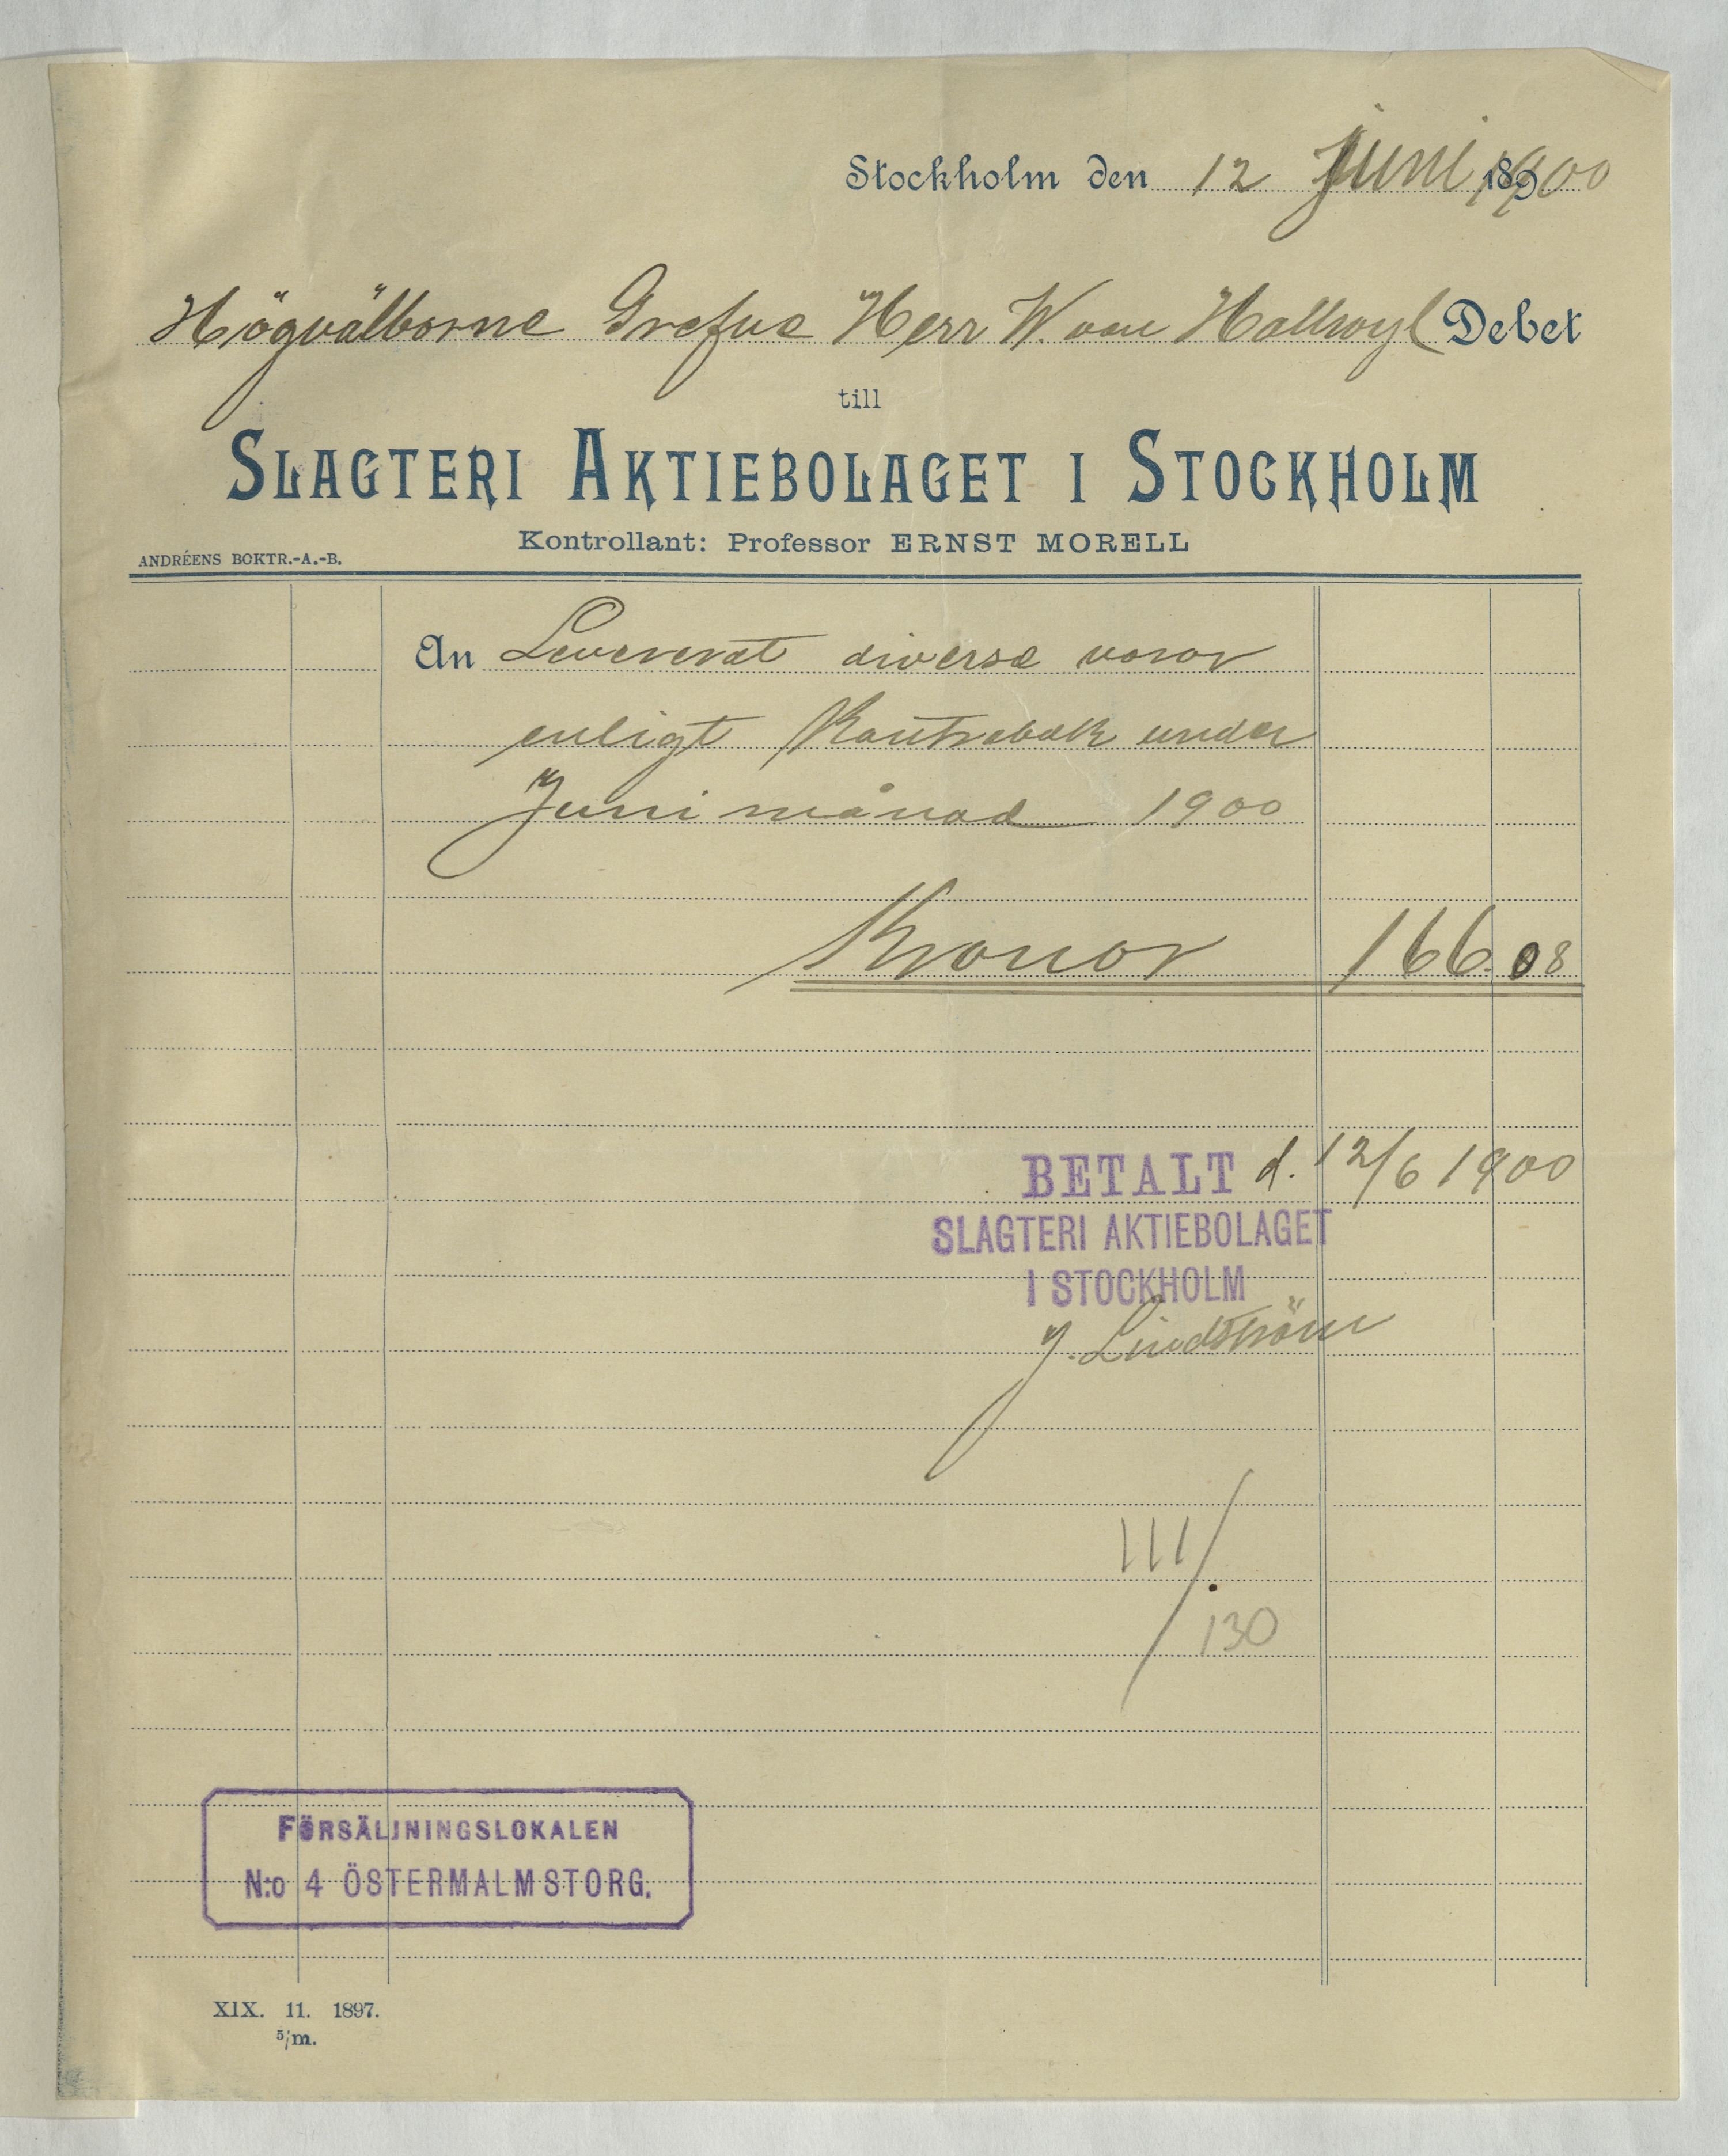 Stockholm den 12 Juni 1900
Högvälborne Grefve Herr W. von Hallwyl Debet
till
SLAGTERI AKTIEBOLAGET I STOCKHOLM
Kontrollant: Professor ERNST MORELL
ANDRÉENS BOKTR.-A.-B.
An Levererat diverse varor
enligt Kontrabok under
Juni månad 1900
Kronor 166.08
BETALT d. 12/6 1900
SLAGTERI AKTIEBOLAGET
I STOCKHOLM
J. Lindström
111/
130
FÖRSÄLJNINGSLOKALEN
N:o 4 ÖSTERMALMSTORG.
XIX. 11. 1897.
5/m.